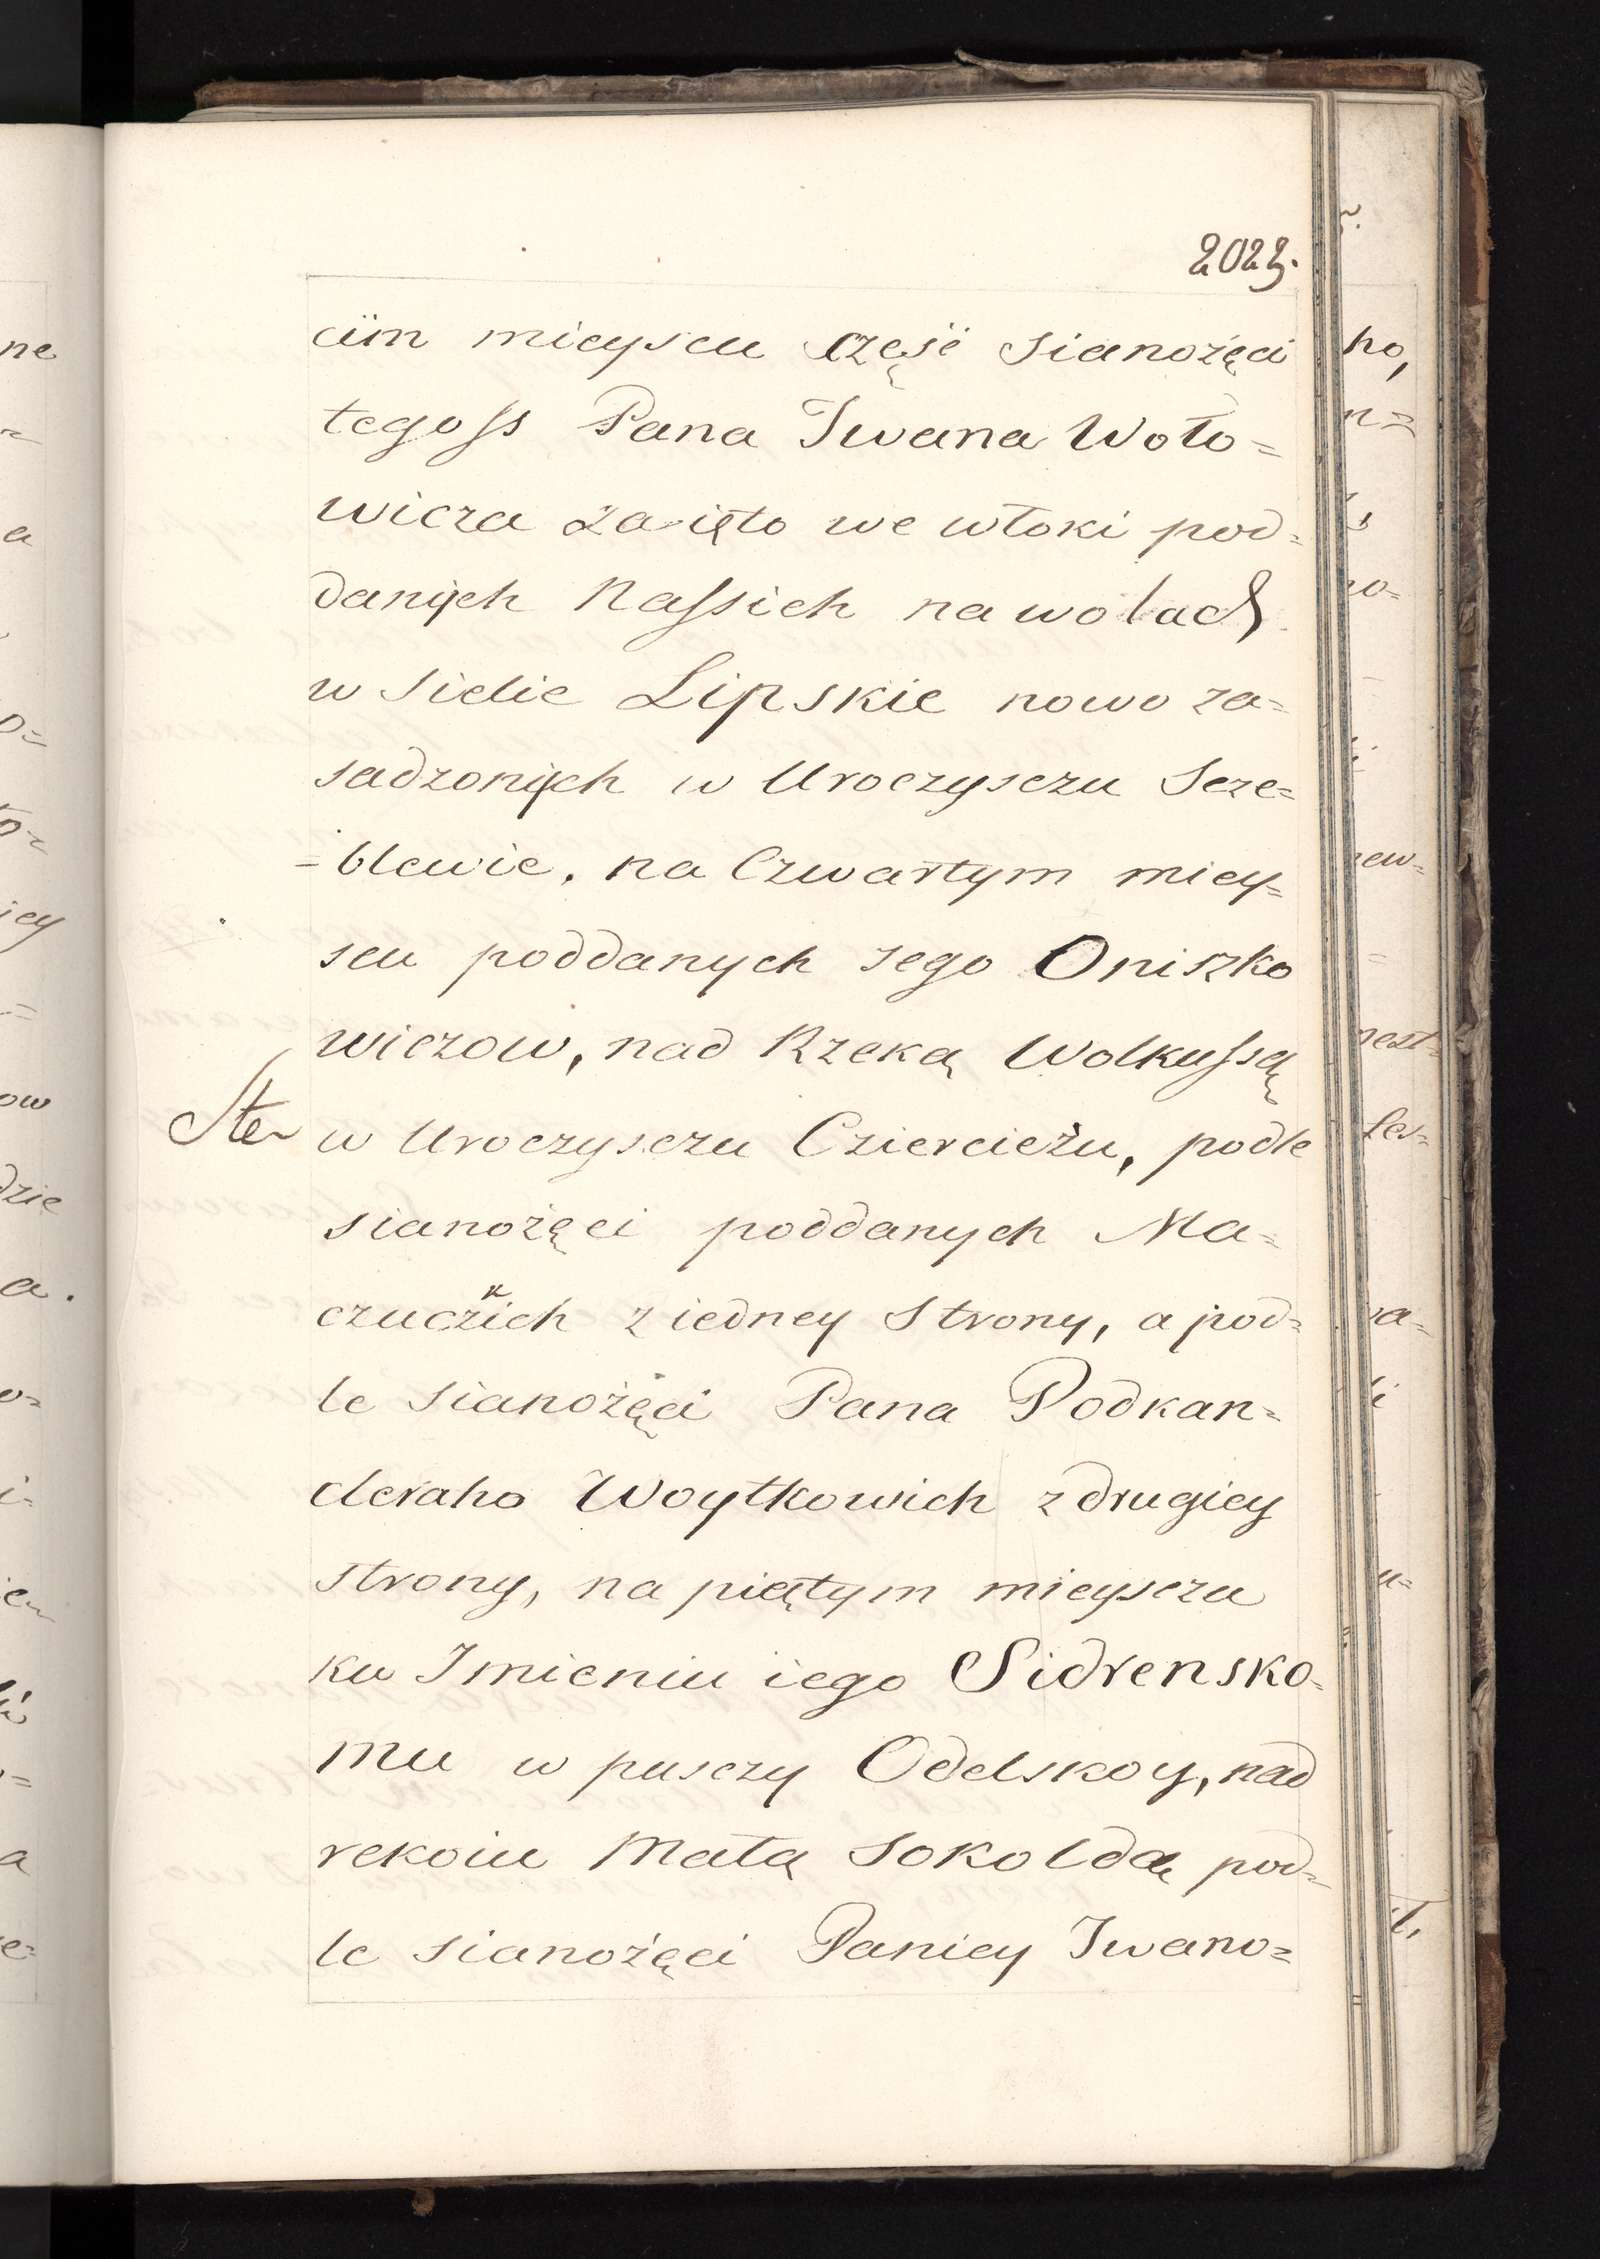 2023.
ciim mieyscu częsć sianożęci
tegoss Pana Iwana Woło=
wicza zaięto we włoki pod=
danych Nassich na wolach
w sielie Lipskie nowo za=
sadzonych w Uroczysczu Sere=
=blewie, na Czwartym miey=
scu poddanych Jego Oniszko
wiczow, nad Rzeką Wolkussą
w Uroczysczu Czierciežu, podle
sianożęci poddanych Ma=
czuczkich z iedney Strony, a pod=
le sianożęci Pana Podkan=
cleraho Woytkowich z drugiey
strony, na piątym mieysczu
ku Imieniu iego Sidrensko=
mu w pusczy Odelskoy, nad
rekoiu Małą Sokoldą pod=
le sianożęci Paniey Iwano=